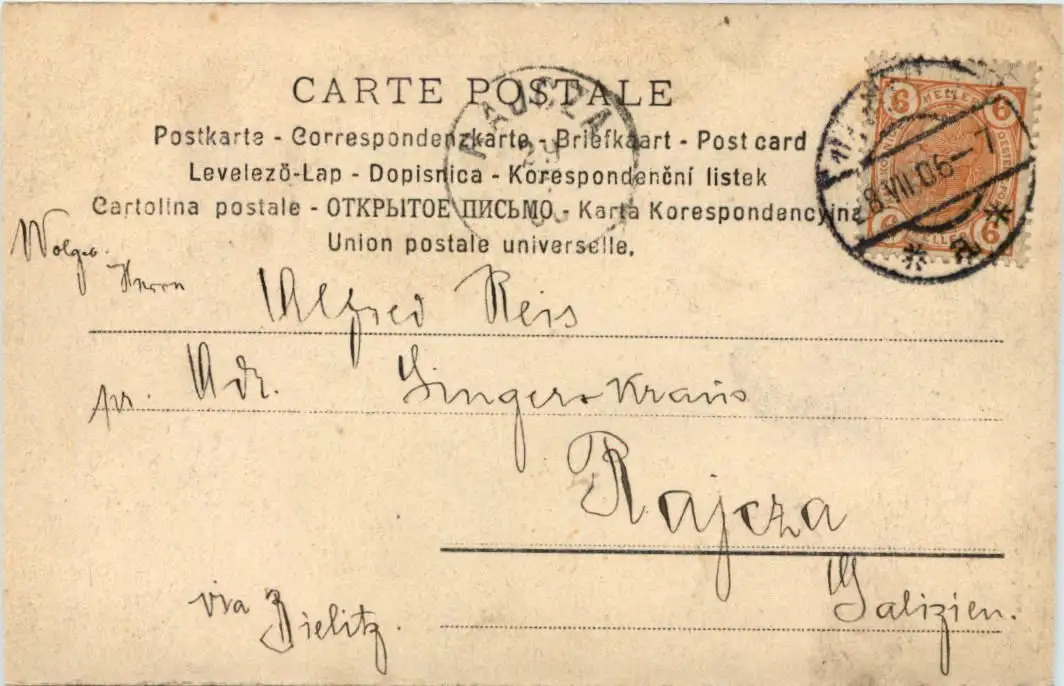 CARTE POSTALE
Postkarte - Correspondenzkarte - Briefkaart - Post card
Levelezö-Lap - Dopisnica - Korespondenční listek
Cartolina postale - ОТКРЫТОЕ ПИСЬМО - Karta Korespondencyjna
Union postale universelle.
6 HELLER 6
6 HELLER 6
8.VII.06-7
Herrn Alfred Reis
pr. Adr. Singer & Kraus
Rajcza
Galizien.
via Bielitz.